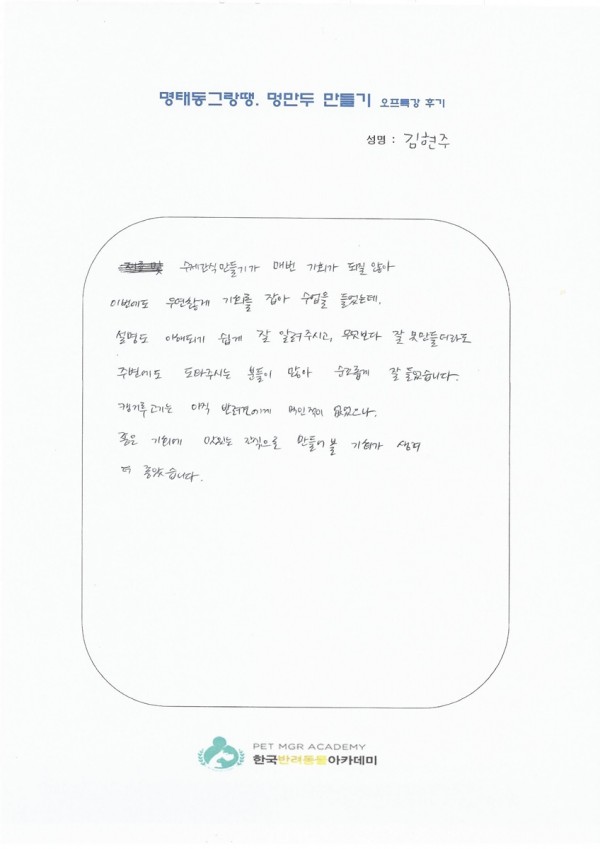 명태동그랑땡. 멍만두 만들기 오프특강 후기
성명 : 김현주
수제간식만들기가 매번 기회가 되질 않아
이번에도 우연찮게 기회를 잡아 수업을 들었는데.
설명도 이해되기 쉽게 잘 알려주시고, 무엇보다 잘 못만들더라도
주변에도 도와주시는 분들이 많아 순조롭게 잘 들었습니다.
캥거루고기는 아직 반려견에게 먹인적이 없었으나.
좋은 기회에 맛있는 간식으로 만들어 볼 기회가 생겨
더 좋았습니다.
PET MGR ACADEMY
한국반려동물아카데미